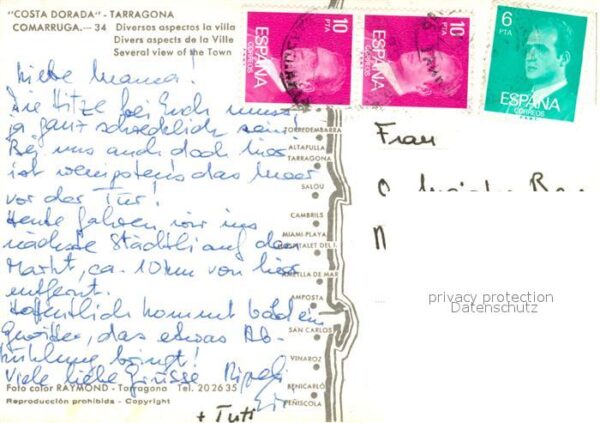 "COSTA DORADA" - TARRAGONA
COMARRUGA.— 34 Diversos aspectos la villa
Divers aspects de la Ville
Several view of the Town
10 PTA
ESPAÑA
CORREOS
10 PTA
ESPAÑA
CORREOS
6 PTA
ESPAÑA
CORREOS
Liebe Mama!
Die Hitze bei Euch muss
ja ganz schrecklich sein!
Bei uns auch doch hier
ist wenigstens das Meer
vor der Tür!
Heute fahren wir ins
nächste Städtli auf den
Markt, ca. 10 km von hier
entfernt.
Hoffentlich kommt bald ein
Gewitter, das etwas Ab-
kühlung bringt!
Viele liebe Grüsse
+ Tuti
TORREDEMBARRA
ALTAFULLA
TARRAGONA
SALOU
CAMBRILS
MIAMI-PLAYA
HOSPITALET DEL I.
AMETLLA DE MAR
AMPOSTA
SAN CARLOS
VINAROZ
BENICARLÓ
PEÑISCOLA
Frau
privacy protection
Datenschutz
Foto color RAYMOND - Tarragona Tel. 202635
Reproducción prohibida - Copyright